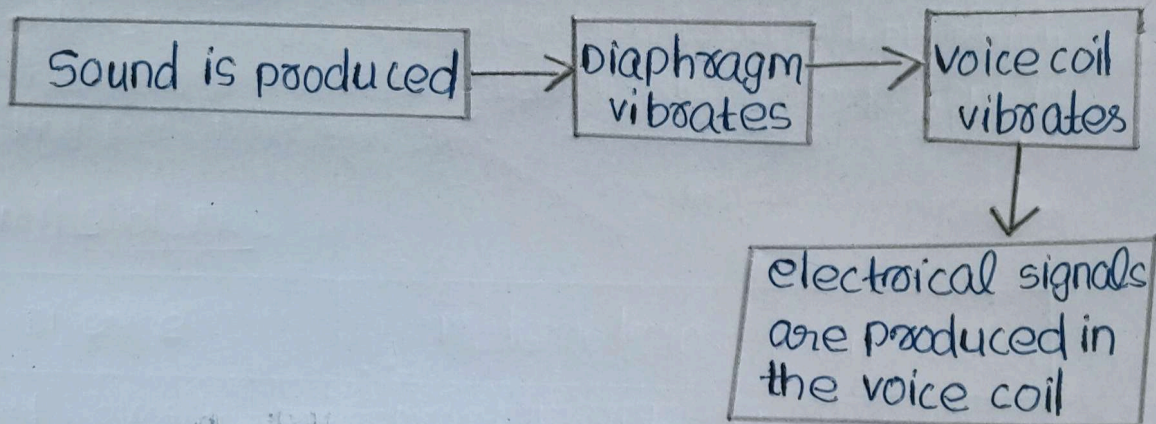 Sound is produced
Diaphragm
vibrates
voice coil
vibrates
electrical signals
are produced in
the voice coil